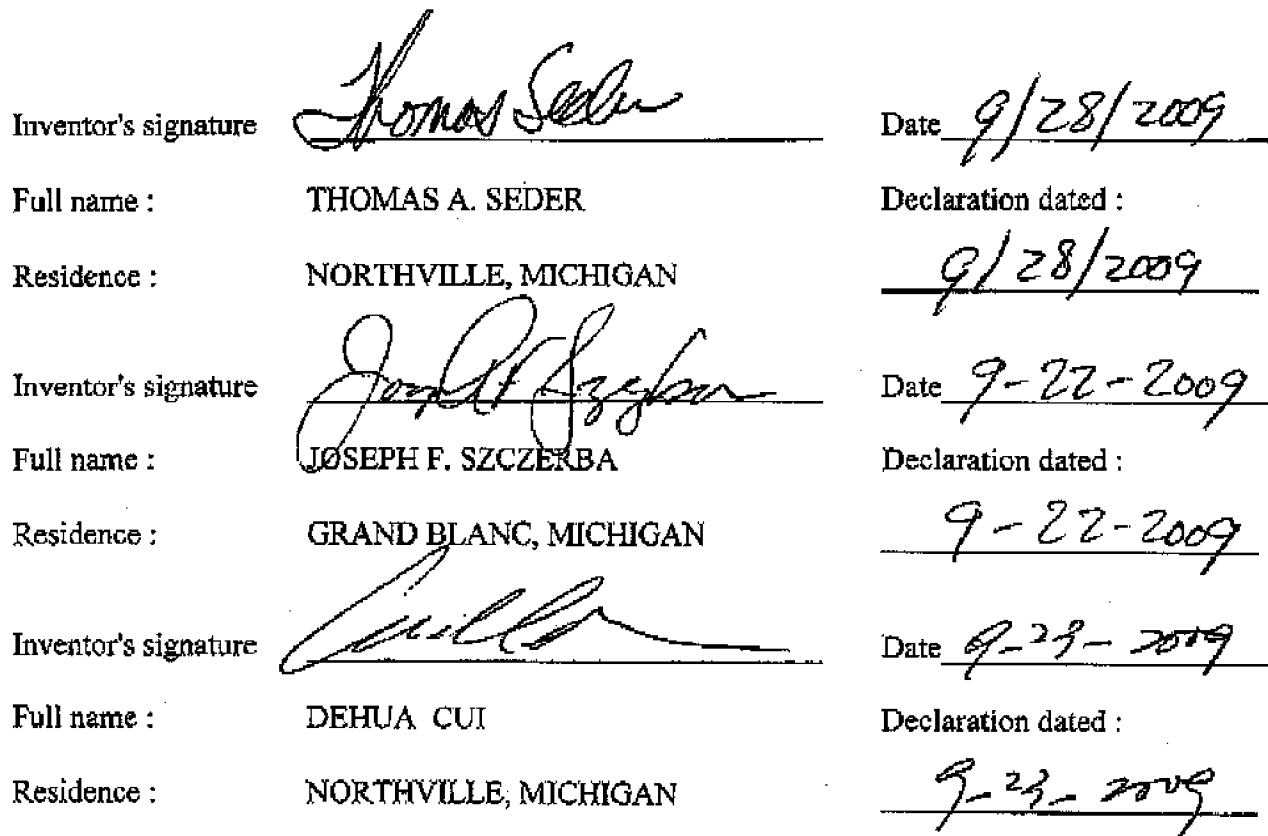 Inventor's signature Thomas Seder Date 9/28/2009
Full name : THOMAS A. SEDER Declaration dated :
Residence : NORTHVILLE, MICHIGAN 9/28/2009
Inventor's signature Joseph F Szczerba Date 9-22-2009
Full name : JOSEPH F. SZCZERBA Declaration dated :
Residence : GRAND BLANC, MICHIGAN 9-22-2009
Inventor's signature Date 9-23-2009
Full name : DEHUA CUI Declaration dated :
Residence : NORTHVILLE, MICHIGAN 9-23-2009